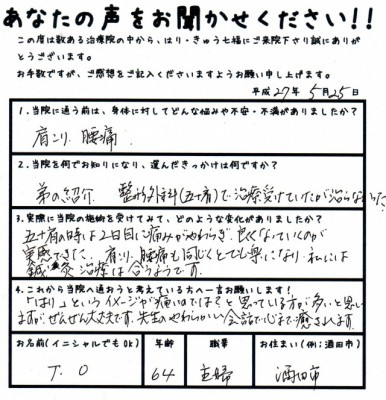 あなたの声をお聞かせください!!
この度は数ある治療院の中から、はり・きゅう七福にご来院下さり誠にありが
とうございます。
お手数ですが、ご感想をご記入くださいますようお願い申し上げます。
平成27年 5月25日
1.当院に通う前は、身体に対してどんな悩みや不安・不満がありましたか?
肩こり 腰痛
2.当院を何でお知りになり、選んだきっかけは何ですか?
弟の紹介 整形外科(五十肩)で治療受けていたが治らなかった
3.実際に当院の施術を受けてみて、どのような変化がありましたか?
五十肩の時は2日目に痛みがやわらぎ、良くなっていくのが
実感できて、肩こり、腰痛も同じくとても楽になり、私には
鍼灸治療は合うようです。
4.これから当院へ通おうと考えている方へ一言お願いします!
「はり」というイメージが痛いのでは?と思っている方が多いと思い
ますが、ぜんぜん大丈夫です。先生のやわらかい会話で心まで癒されます
お名前(イニシャルでもOK) 年齢 職業 お住まい(例:酒田市)
T.O 64 主婦 酒田市